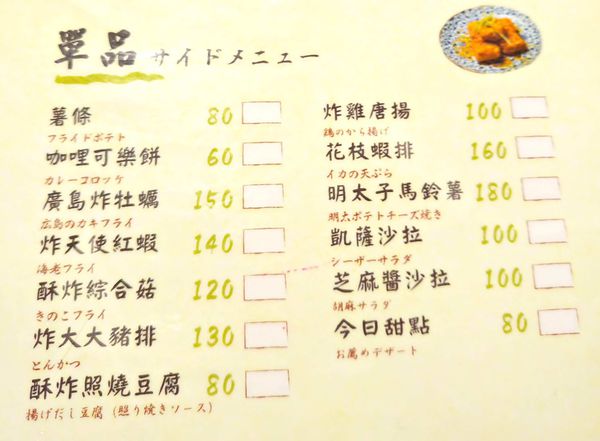 單品 サイドメニュー
薯條 80
フライドポテト
咖哩可樂餅 60
カレーコロッケ
廣島炸牡蠣 150
広島のカキフライ
炸天使紅蝦 140
海老フライ
酥炸綜合菇 120
きのこフライ
炸大大豬排 130
とんかつ
酥炸照燒豆腐 80
揚げだし豆腐（照り焼きソース）
炸雞唐揚 100
鶏のから揚げ
花枝蝦排 160
イカの天ぷら
明太子馬鈴薯 180
明太ポテトチーズ焼き
凱薩沙拉 100
シーザーサラダ
芝麻醬沙拉 100
胡麻サラダ
今日甜點 80
お薦めデザート